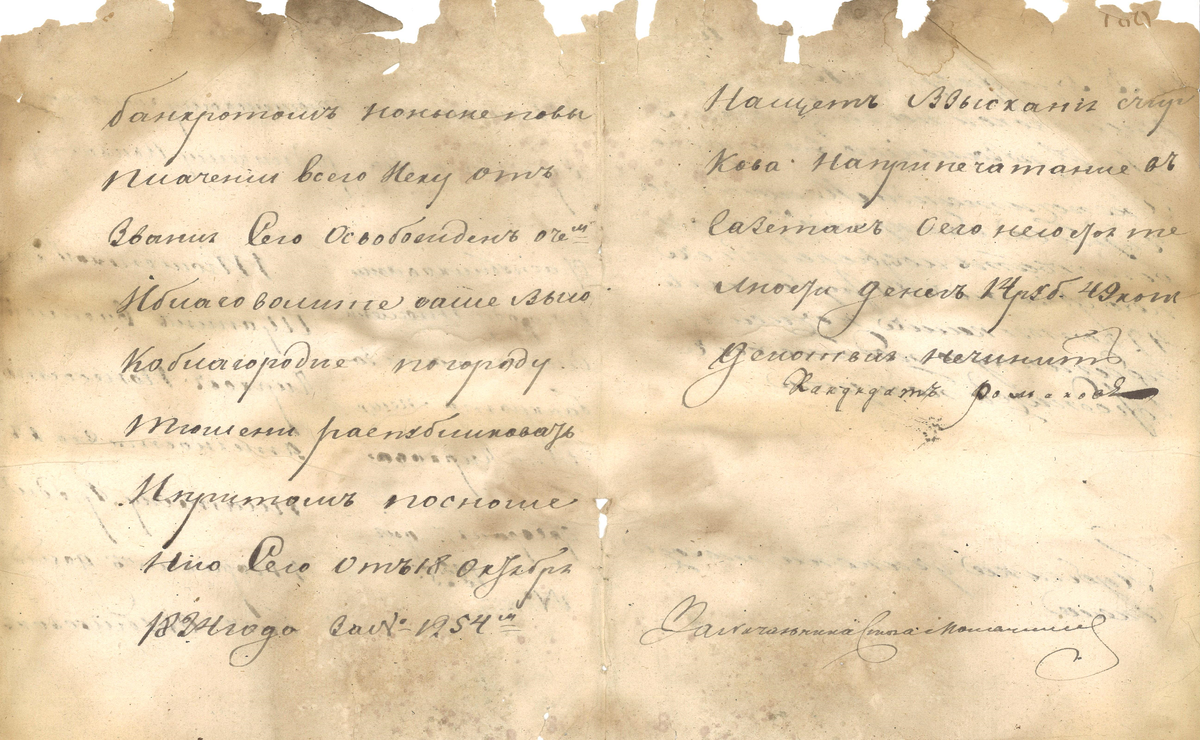 банкротомъноныне повы
плачении всего Иску отъ
Звания Сего Освобожденъ очемъ
Иблаговолите ваше Высо
Коблагородие погороду
Тюмени распубликовать
Ипритомъ посноше
Нию Сего отъ 18 октября
1834 года За № 1254м
Нащетъ Взыскания
Кова Напрепечатание въ
Газетахъ Оего несостояте
лности денегъ 14 руб. 49 коп
действия нечинить
Кандидатъ